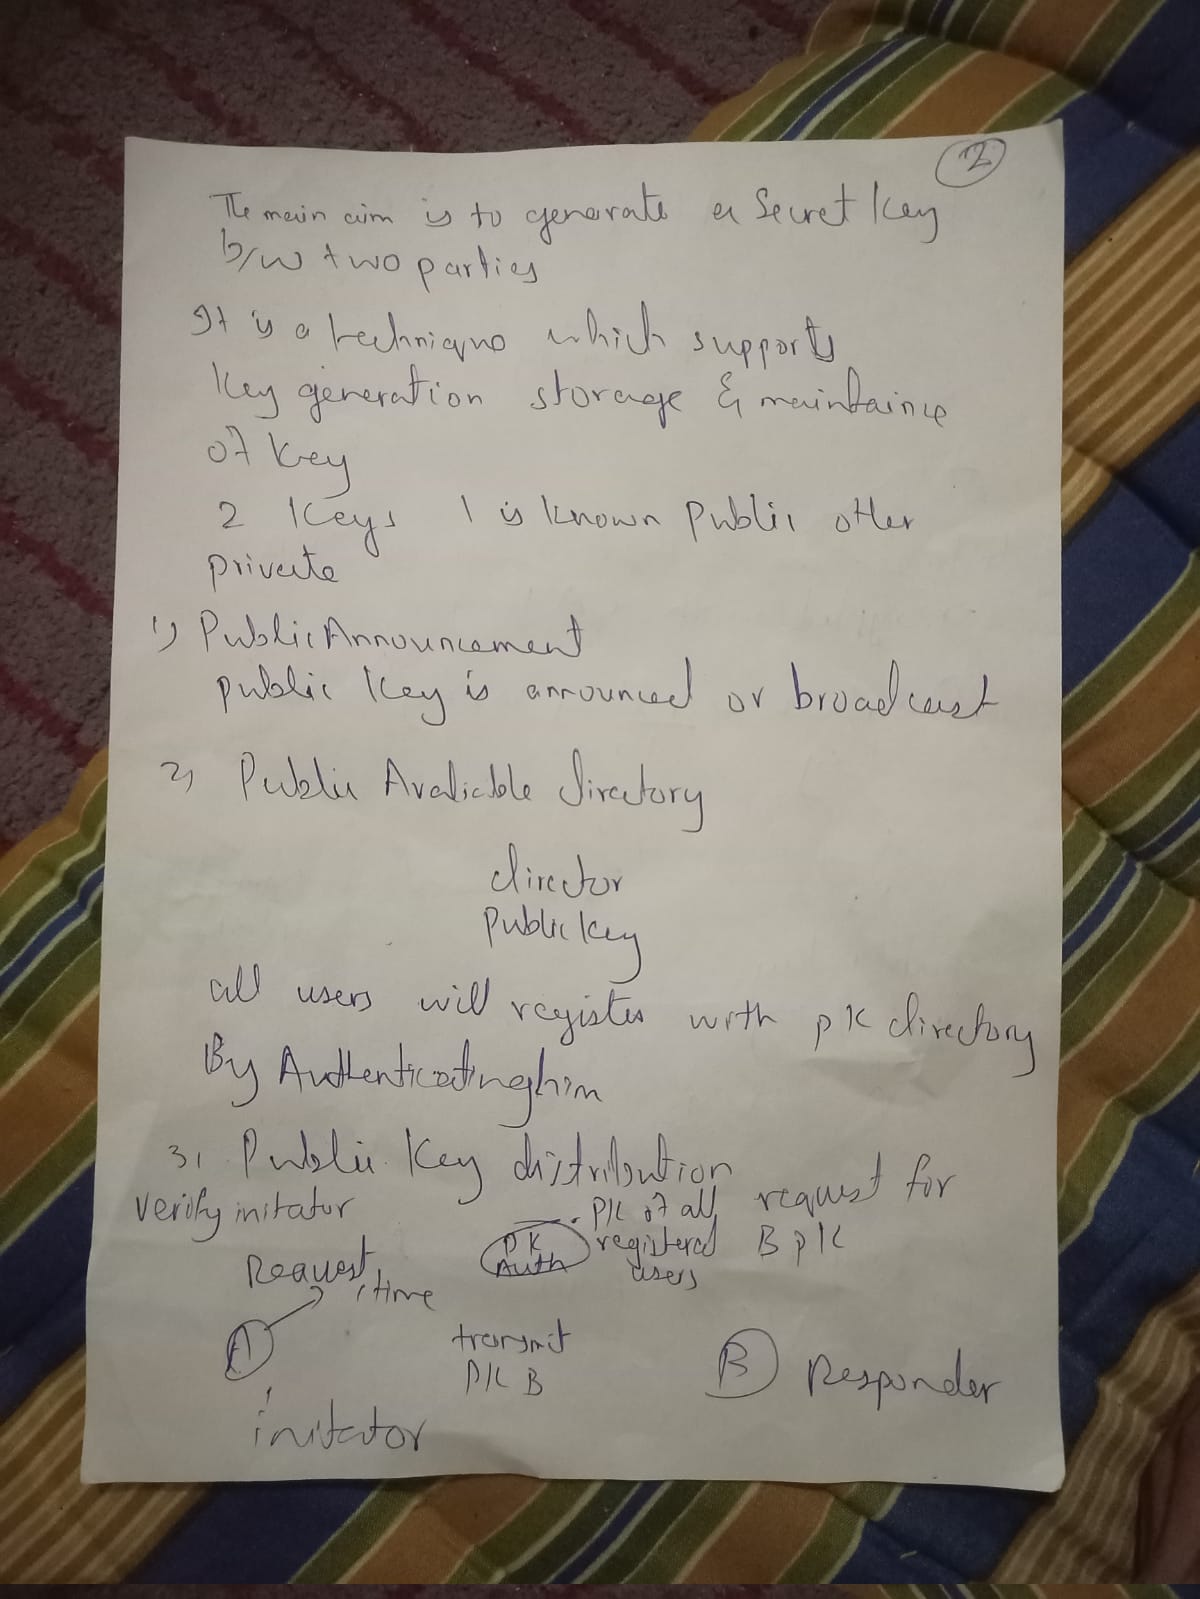 2
The main aim is to generate a Secret key
b/w two parties
It is a technique which supports
key generation storage & maintaince
of key
2 keys 1 is known public other
private
1) Public Announcement
public key is announced or broadcast
2) Public Avaliable directory
director
Public key
all users will register with pk directory
By Authenticatinghim
3) Public Key distribution
verify initator
PK of all
registered
users
request for
B pk
PK
Auth
Request, time
A
transmit
PK B
B
Responder
initator